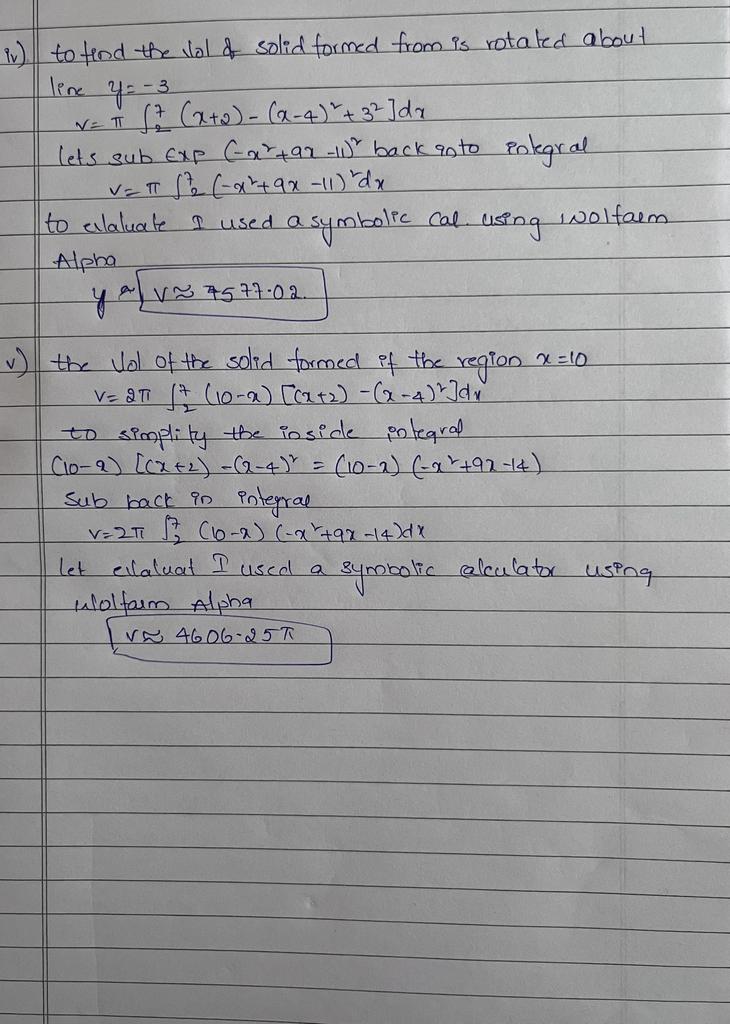 iv) to find the Vol of solid formed from is rotated about
line y = -3
v = π ∫₂⁷ (x+2) - (x-4)² + 3²]dx
lets sub Exp (-x²+9x-11)² back into integral
v = π ∫₂⁷ (-x²+9x-11)²dx
to evaluate I used a symbolic cal using wolfaem
Alpha
y ≈ v ≈ 7577.02.
v) the Vol of the solid formed if the region x=10
v = 2π ∫₂⁷ (10-x) [(x+2) - (x-4)²]dx
to simplify the inside integral
(10-x) [(x+2) - (x-4)² = (10-x) (-x²+9x-14)
Sub back in integral
v=2π ∫₂⁷ (10-x) (-x²+9x-14)dx
let evaluat I used a symbolic calculator using
Wolfaem Alpha
v ≈ 4606.25π